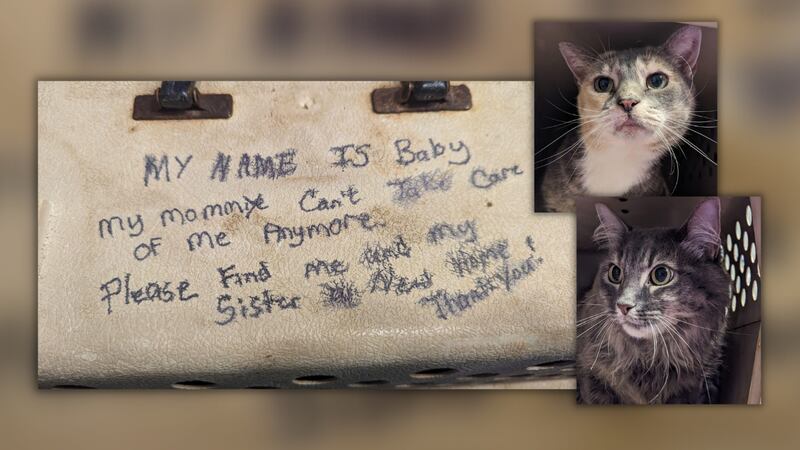 MY NAME IS Baby
my mommie Can't Take Care
of me Anymore.
Please Find me and my
Sister A New Home
Thank You!